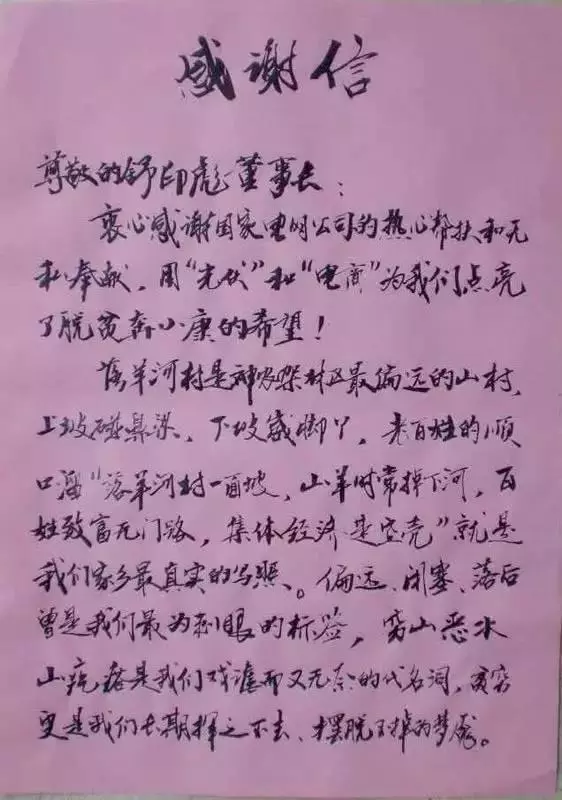 感谢信
尊敬的舒印彪董事长：
衷心感谢国家电网公司的热心帮扶和无
私奉献，用“光伏”和“电商”为我们点亮
了脱贫奔小康的希望！
落羊河村是神农架林区最偏远的山村，
上坡碰鼻梁、下坡戚脚丫，老百姓的顺
口溜“落羊河村一面坡，山羊时常掉下河，百
姓致富无门路，集体经济是空壳”就是
我们家乡最真实的写照。偏远、闭塞、落后
曾是我们最为刺眼的标签，穷山恶水
山疙瘩是我们戏谑而又无奈的代名词，贫穷
更是我们长期挥之不去、摆脱不掉的梦魇。